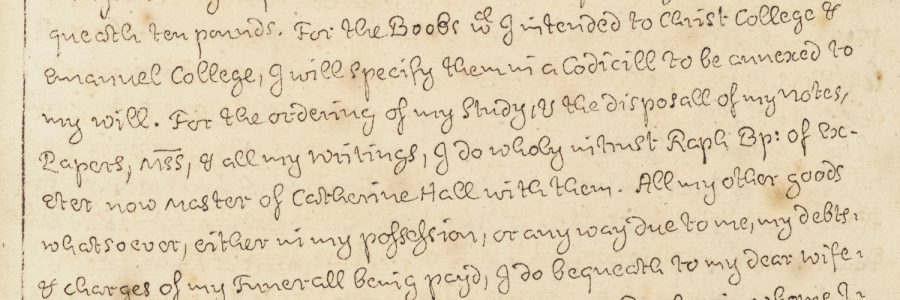 queath ten pounds. For the Books wch I intended to Christ College &
Emanuel College, I will specify them in a Codicill to be annexed to
my will. For the ordering of my Study, & the disposall of my Notes,
Papers, MSS, & all my writings, I do wholy intrust Raph Bp: of Ex-
eter now Master of Catherine Hall with them. All my other goods
whatsoever, either in my possession, or any way due to me, my debts
& charges of my Funerall being payd, I do bequeath to my dear wife